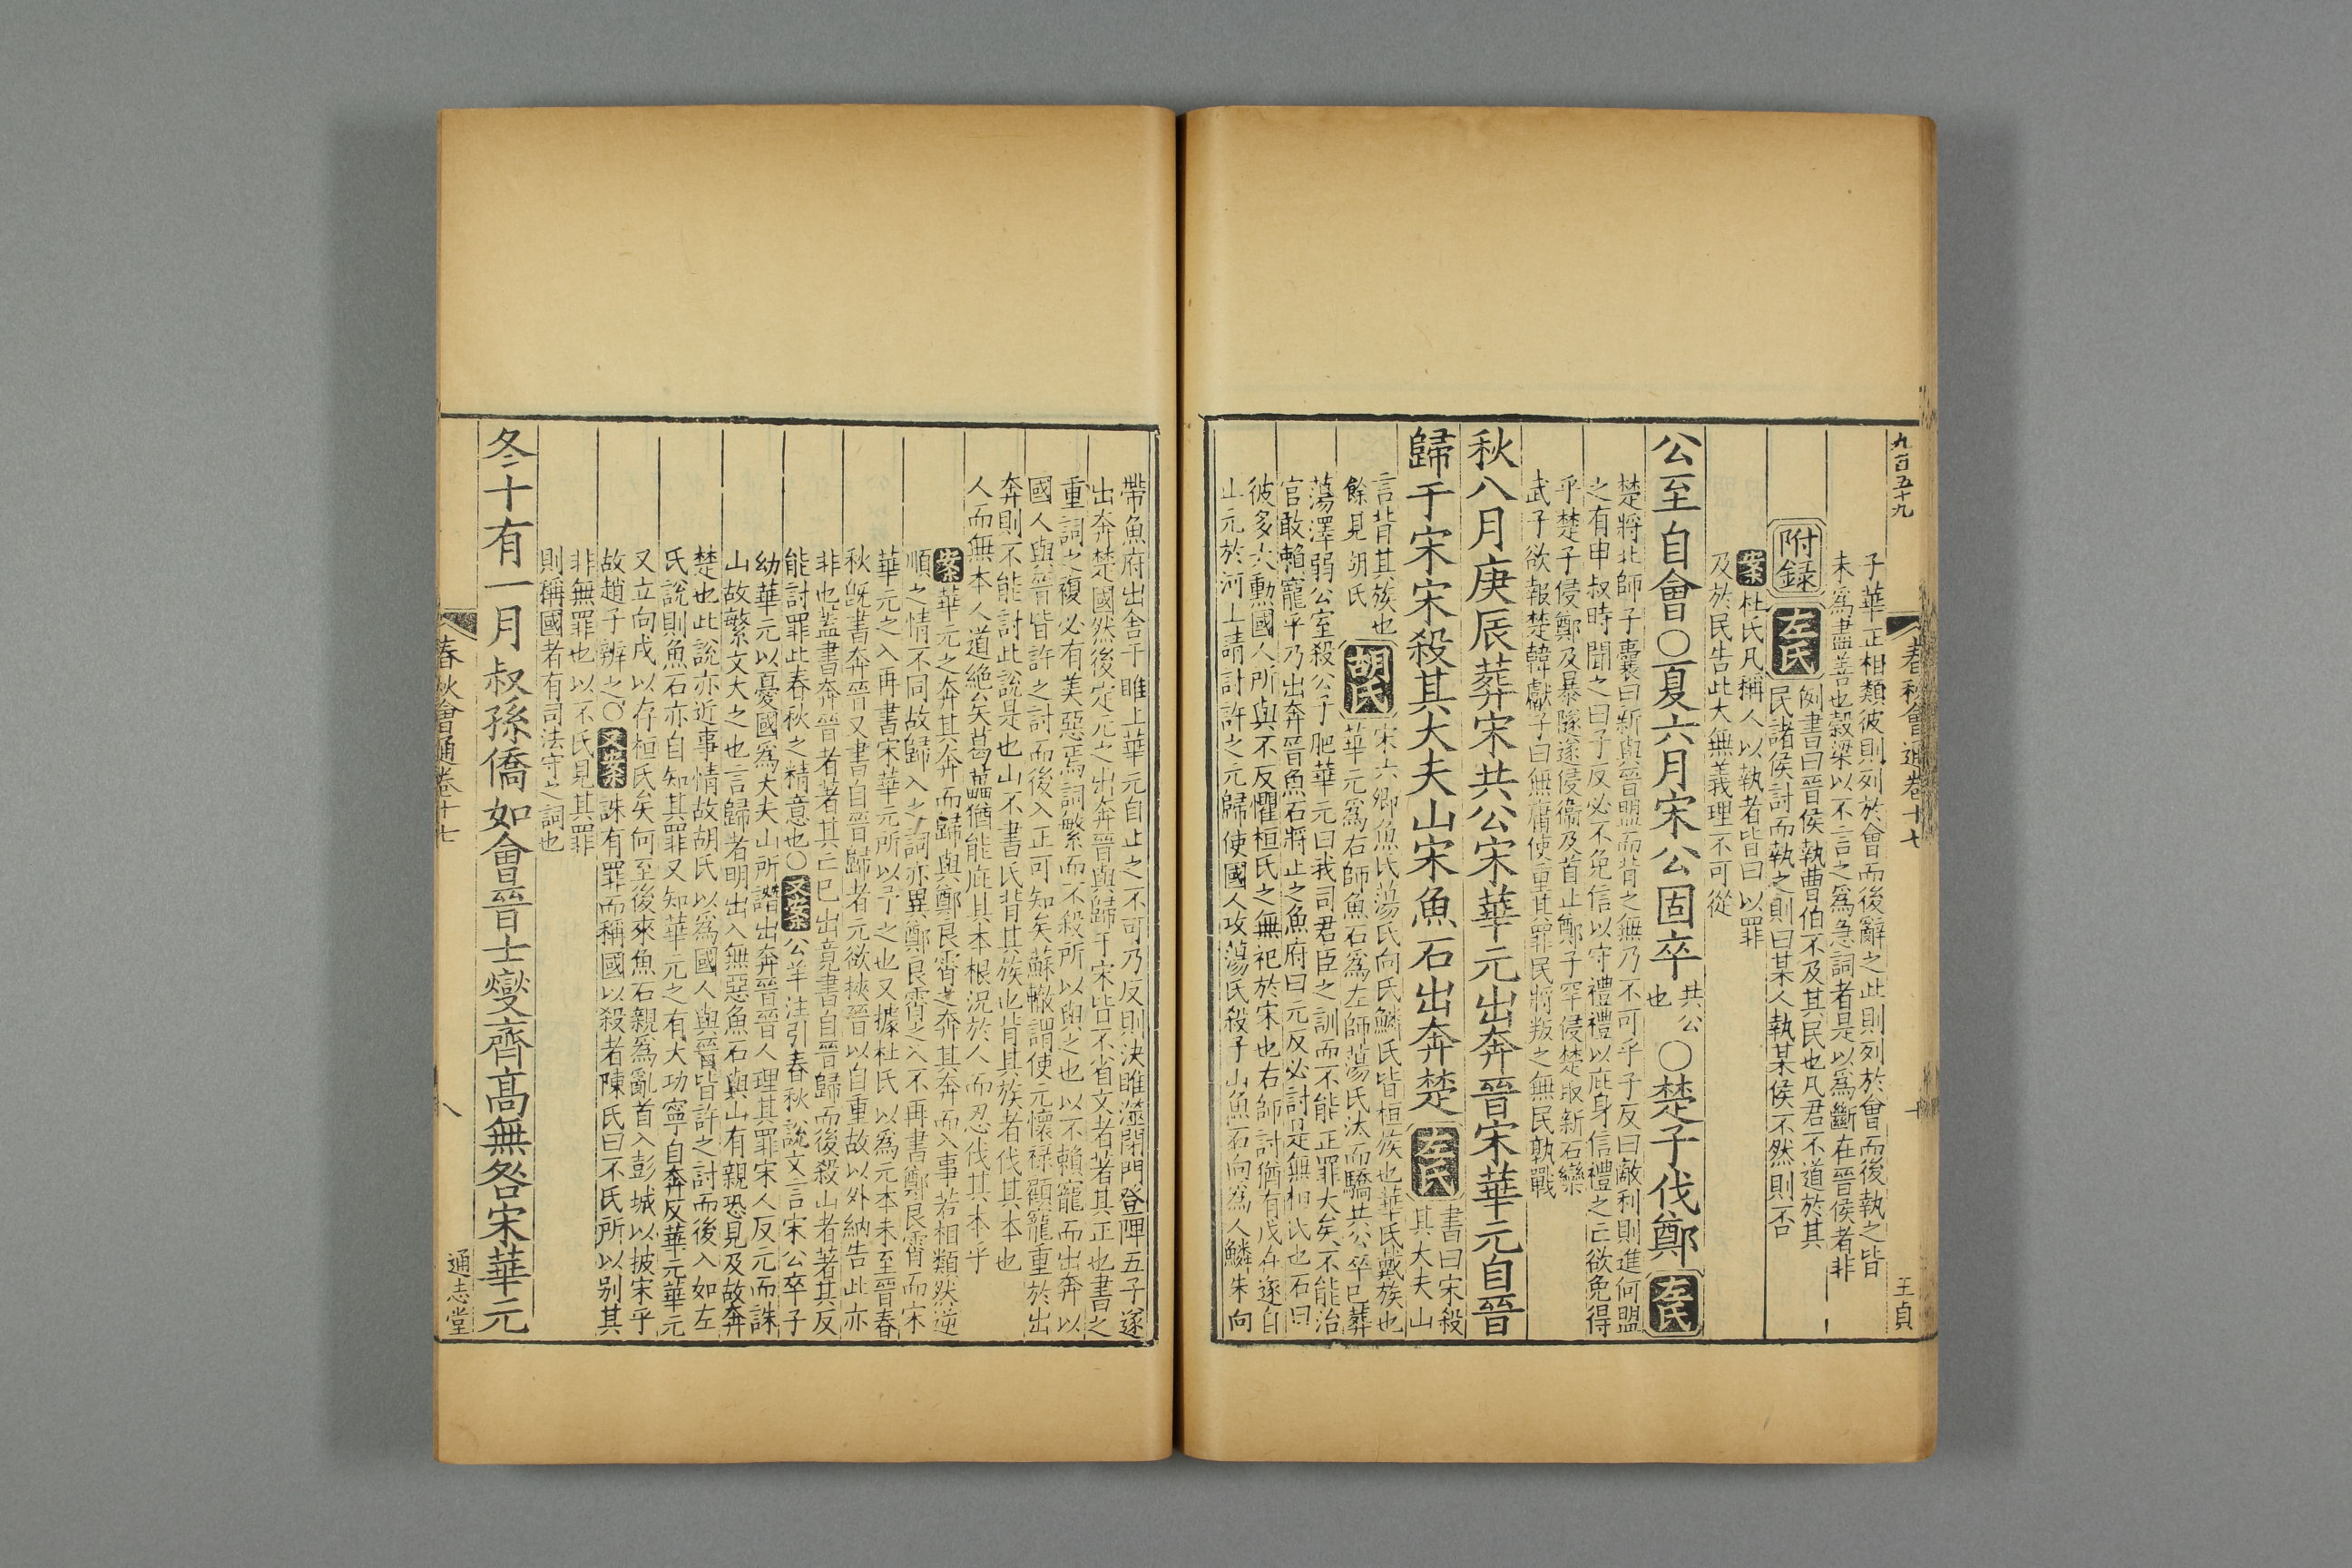 九百五十九
春秋會通卷十七
十
王貞
子華正相類彼則列於會而後辭之此則列於會而後執之皆
未爲盡善也穀梁以不言之爲急詞者是以爲斷在晉侯者非
附録 左氏 例書曰晉侯執曹伯不及其民也凡君不道於其
民諸侯討而執之則曰某人執某侯不然則否
案 杜氏凡稱人以執者皆曰以罪
及於民告此大無義理不可從
公至自會○夏六月宋公固卒 共公也 ○楚子伐鄭 左氏
楚將北師子囊曰新與晉盟而背之無乃不可乎子反曰敵利則進何盟
之有申叔時聞之曰子反必不免信以守禮禮以庇身信禮之亡欲免得
乎楚子侵鄭及暴隧遂侵衞及首止鄭子罕侵楚取新石欒
武子欲報楚韓獻子曰無庸使重其罪民將叛之無民孰戰
秋八月庚辰葬宋共公宋華元出奔晉宋華元自晉
歸于宋宋殺其大夫山宋魚石出奔楚 左氏 書曰宋殺其大夫山
言背其族也
餘見胡氏 胡氏 宋六卿魚氏蕩氏向氏鱗氏皆桓族也華氏戴族也
華元爲右師魚石爲左師蕩氏汰而驕共公卒已葬
蕩澤弱公室殺公子肥華元曰我司君臣之訓而不能正罪大矣不能治
官敢賴寵乎乃出奔晉魚石將止之魚府曰元反必討是無桓氏也石曰
彼多大勳國人所與不反懼桓氏之無祀於宋也右師討猶有戌在遂自
止元於河上請討許之元歸使國人攻蕩氏殺子山魚石向爲人鱗朱向
帶魚府出舍于睢上華元自止之不可乃反則決睢澨閉門登陴五子遂
出奔楚國然後定元之出奔晉與歸于宋皆不省文者著其正也書之
重詞之複必有美惡焉詞繁而不殺所以與之也以不賴寵而出奔以
國人與晉皆許之討而後入正可知矣蘇轍謂使元懷祿顧寵重於出
奔則不能討此說是也山不書氏背其族也背其族者伐其本也
人而無本人道絶矣葛藟猶能庇其本根況於人而忍伐其本乎
案 華元之奔其奔而歸與鄭良霄之奔其奔而入事若相類然逆
順之情不同故歸入之詞亦異鄭良霄之入不再書鄭良霄而宋
華元之入再書宋華元所以予之也又據杜氏以爲元本未至晉春
秋旣書奔晉又書自晉歸者元欲挾晉以自重故以外納告此亦
非也蓋書奔晉者著其亡已出竟書自晉歸而後殺山者著其反
能討罪此春秋之精意也○ 又案 公羊注引春秋說文言宋公卒子
幼華元以憂國爲大夫山所譖出奔晉晉人理其罪宋人反元而誅
山故繁文大之也言歸者明出入無惡魚石與山有親恐見及故奔
楚也此說亦近事情故胡氏以爲國人與晉皆許之討而後入如左
氏說則魚石亦自知其罪又知華元之有大功寧自奔反華元華元
又立向戌以存桓氏矣何至後來魚石親爲亂首入彭城以披宋乎
故趙子辨之○ 又案 誅有罪而稱國以殺者陳氏曰不氏所以别其
非無罪也以不氏見其罪
則稱國者有司法守之詞也
冬十有一月叔孫僑如會晉士燮齊高無咎宋華元
春秋會通卷十七
八
通志堂